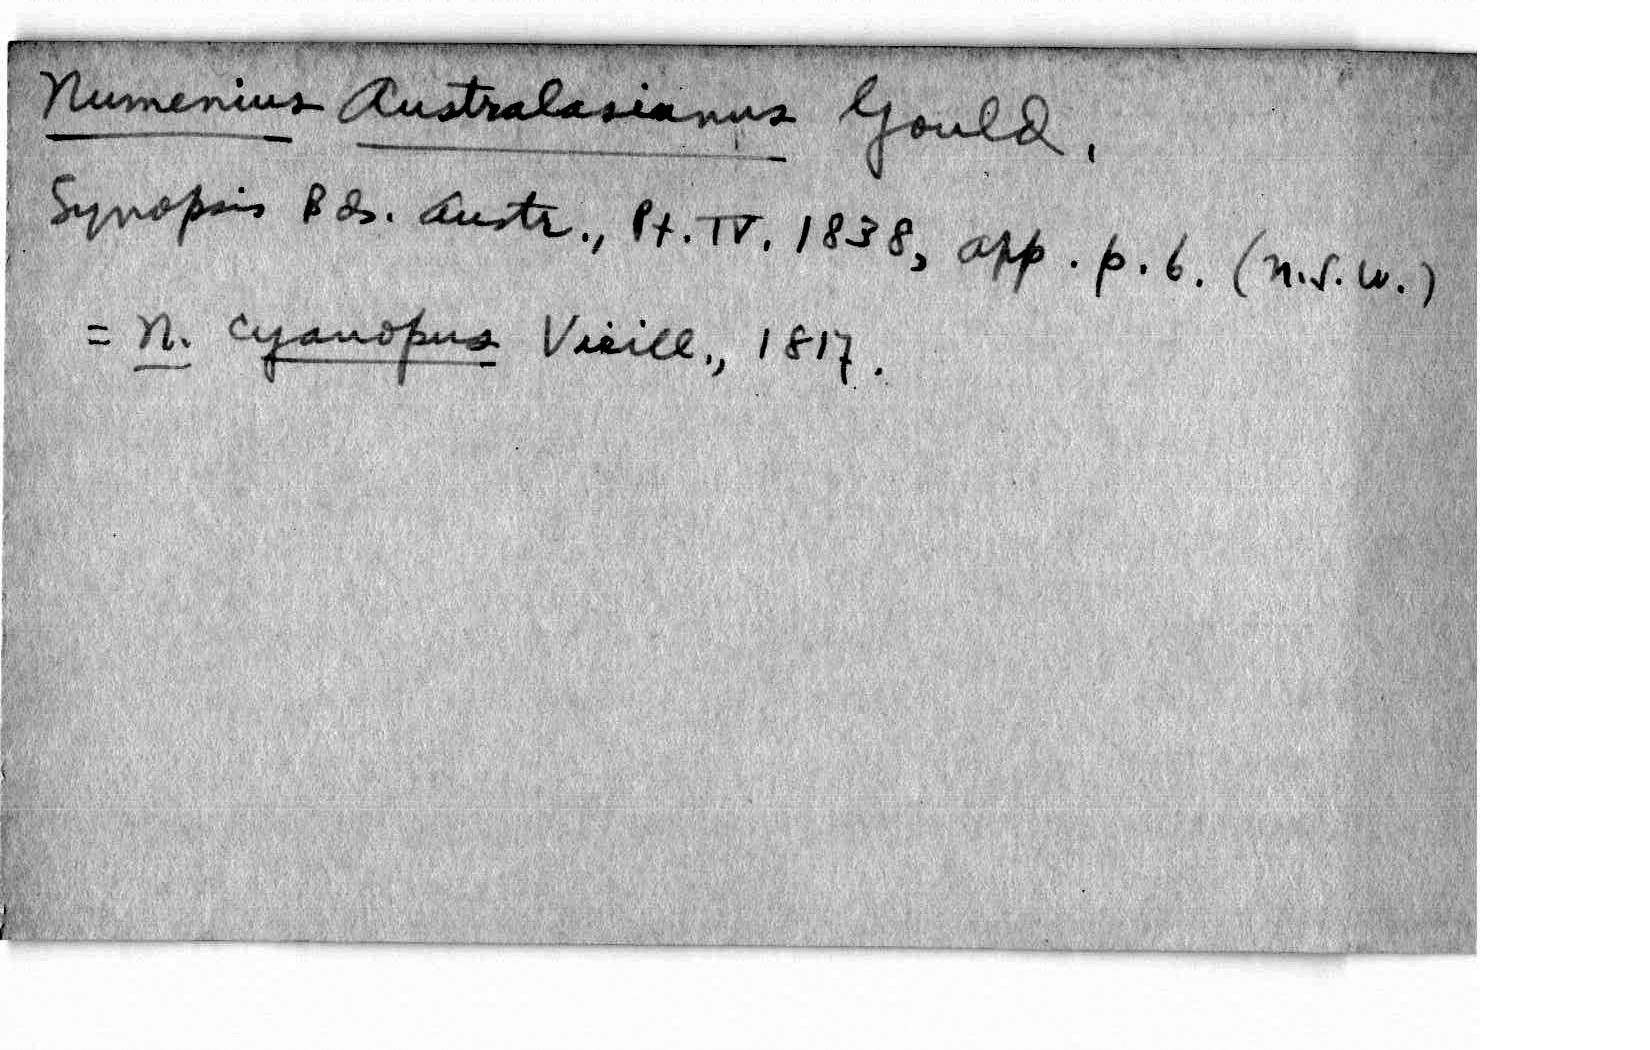 Numenius Australasianus Gould.
Synopsis Bds. Austr., Pt. IV. 1838, app. p. 6. (N.S.W.)
= N. cyanopus Vieill., 1817.